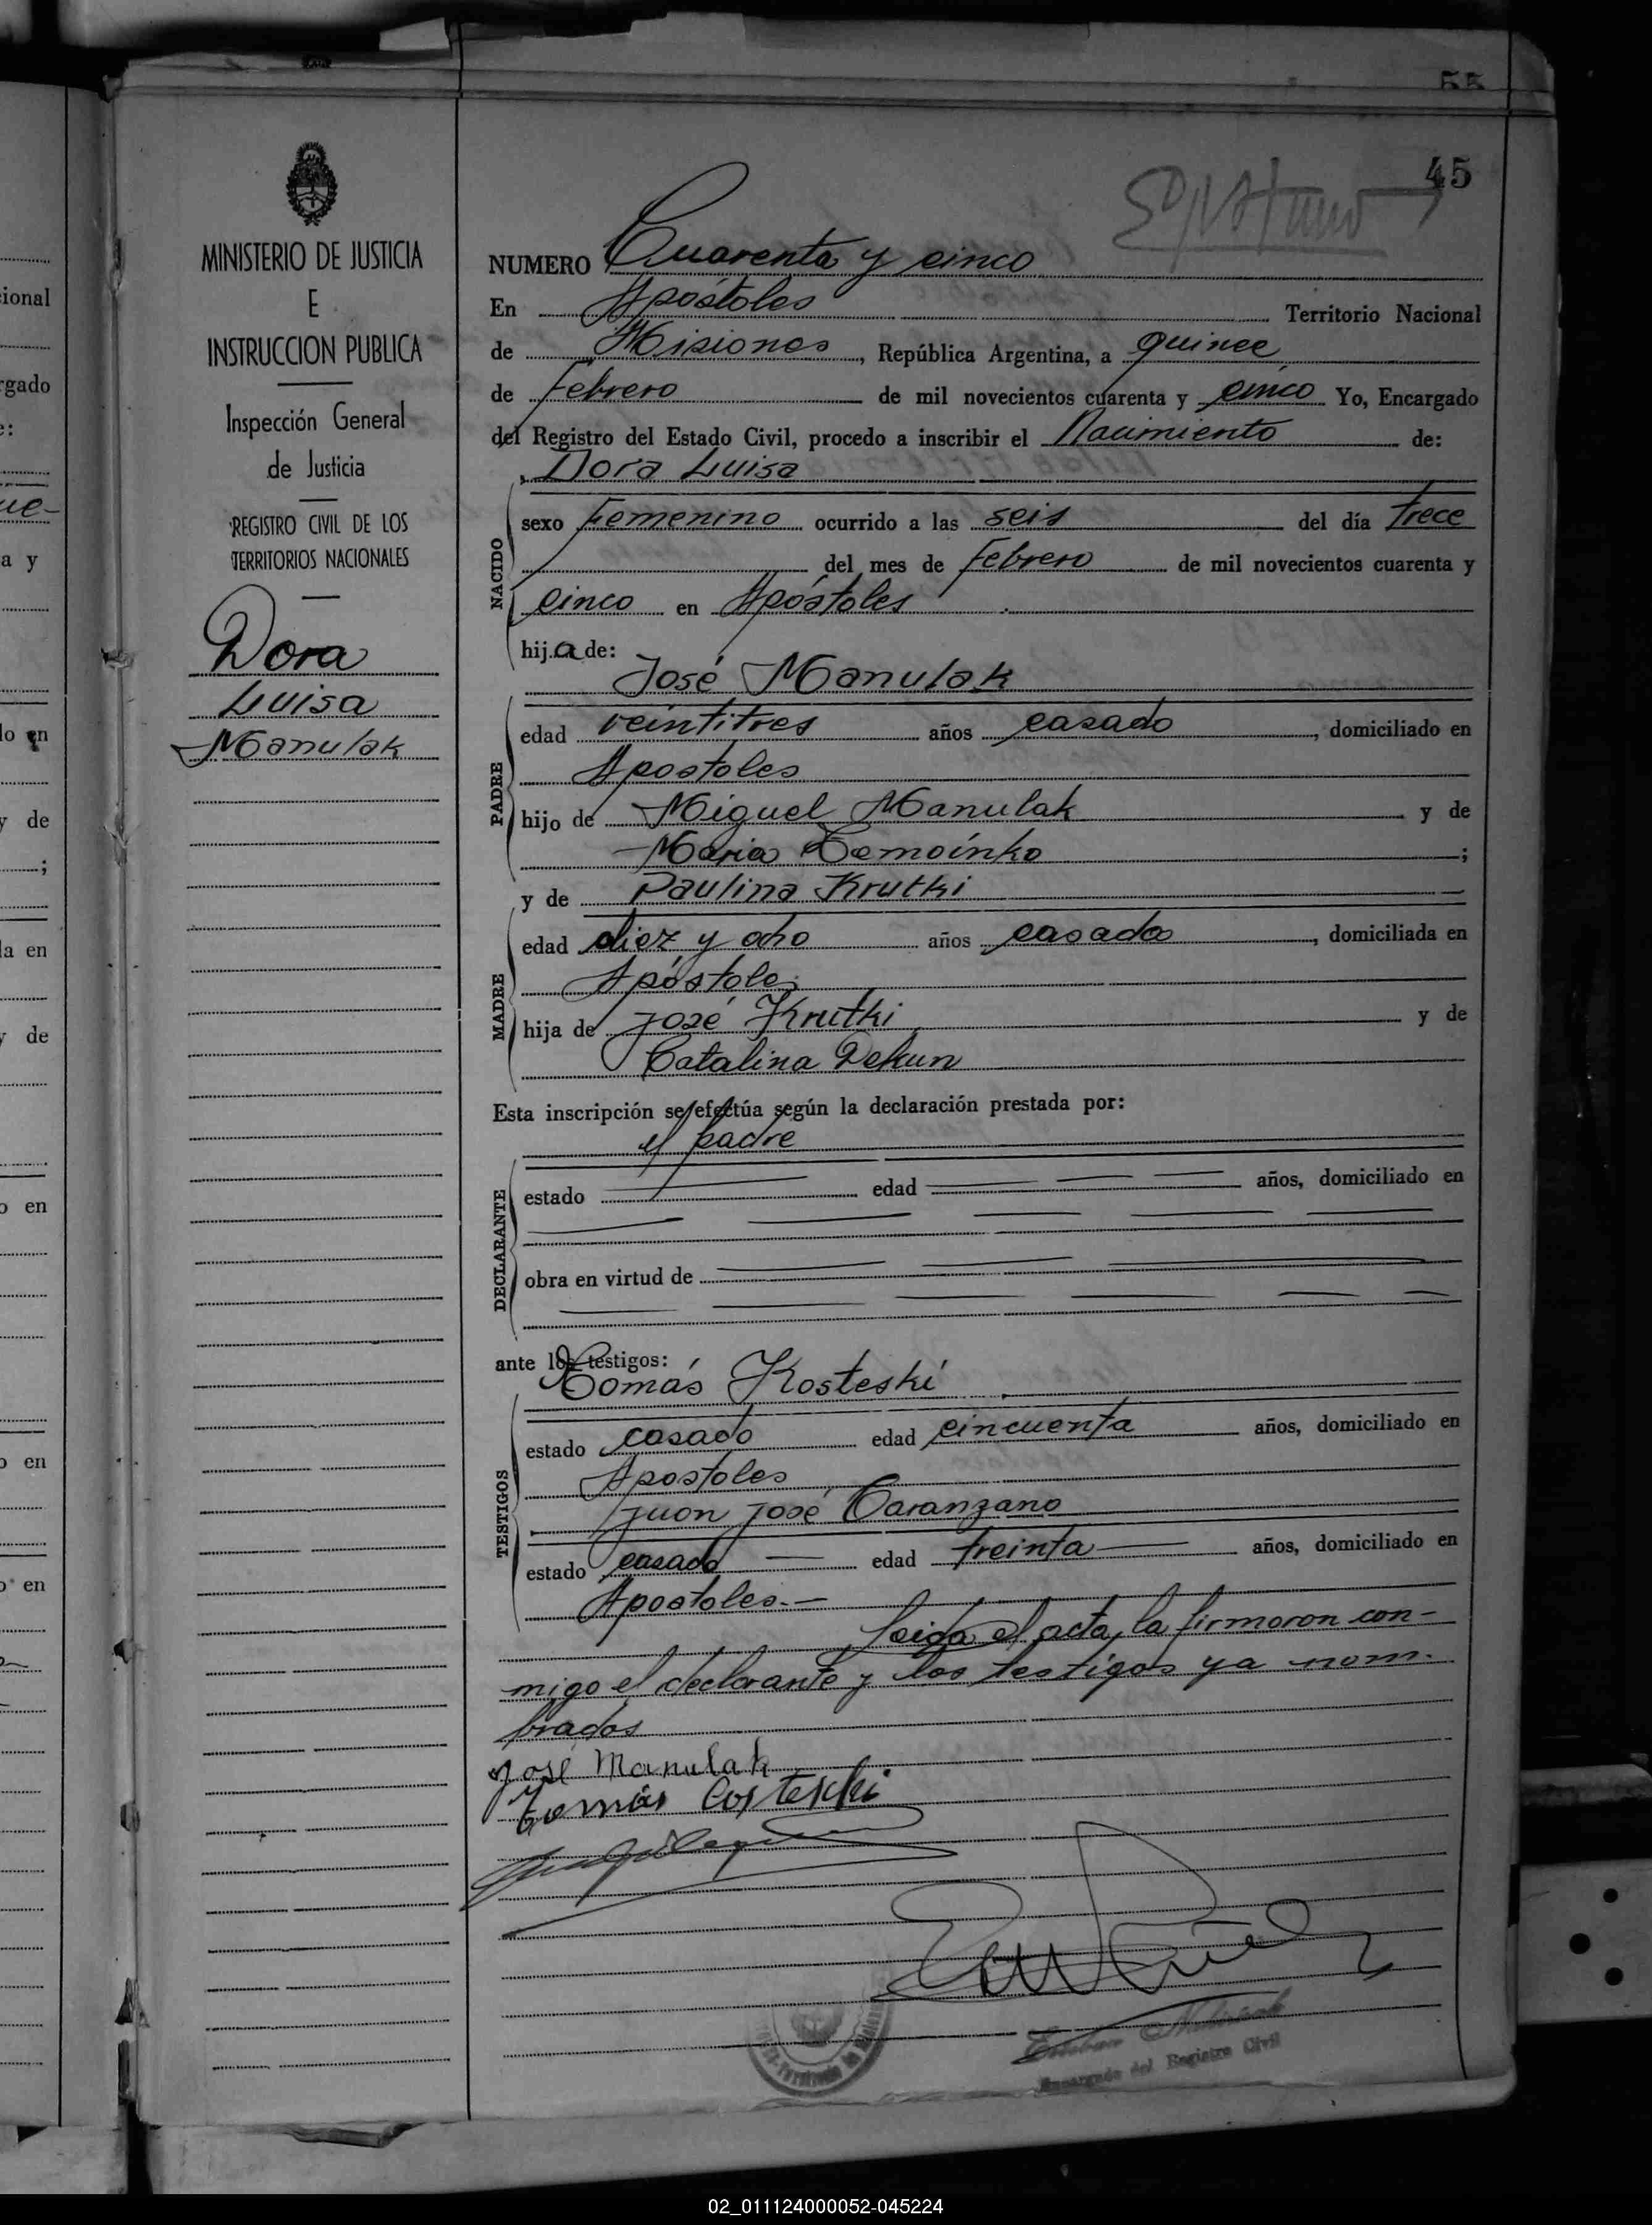 55
45
MINISTERIO DE JUSTICIA
E
INSTRUCCION PUBLICA
Inspección General
de Justicia
REGISTRO CIVIL DE LOS
TERRITORIOS NACIONALES
Dora
Luisa
Manulak
NUMERO Cuarenta y cinco
En Apóstoles Territorio Nacional
de Misiones, República Argentina, a quince
de Febrero de mil novecientos cuarenta y cinco Yo, Encargado
del Registro del Estado Civil, procedo a inscribir el Nacimiento de:
Dora Luisa
NACIDO
sexo Femenino ocurrido a las seis del día trece
del mes de Febrero de mil novecientos cuarenta y
cinco en Apóstoles
hija de:
José Manulak
PADRE
edad veintitres años casado, domiciliado en
Apostoles
hijo de Miguel Manulak y de
Maria ;
y de Paulina Krutki
MADRE
edad diez y ocho años casada, domiciliada en
Apóstoles
hija de José Krutki y de
Catalina Dekun
Esta inscripción se efectúa según la declaración prestada por:
el padre
DECLARANTE
estado edad años, domiciliado en
obra en virtud de
ante los testigos:
Tomás Kosteski
TESTIGOS
estado casado edad cincuenta años, domiciliado en
Apostoles
Juan José Taranzano
estado casado — edad treinta — años, domiciliado en
Apostoles.—
Leida el acta, la firmaron con-
migo el declarante y los testigos ya nom-
brados
José Manulak
Tomás Costeski
Esteban
Encargado del Registro Civil
ional
rgado
e:
ue-
a y
lo en
y de
;
la en
y de
o en
o en
o en
02_011124000052-045224